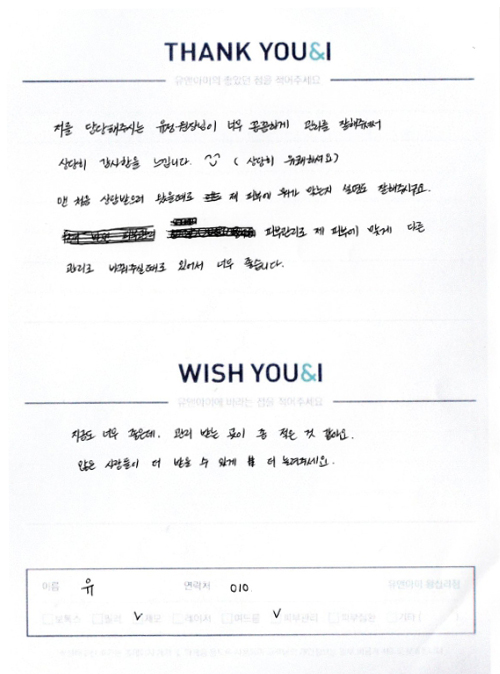 THANK YOU&I
유앤아이의 좋았던 점을 적어주세요
저를 담당해주시는 유정원장님이 너무 꼼꼼하게 관리를 잘해주셔서
상당히 감사함을 느낍니다. ^^ ( 상당히 유쾌하셔요)
맨 처음 상담받으러 왔을때도 제 피부에 뭐가 맞는지 설명도 잘해주시구요.
피부관리로 제 피부에 맞게 다른
관리로 바꿔주실때도 있어서 너무 좋습니다.
WISH YOU&I
유앤아이에 바라는 점을 적어주세요
지금도 너무 좋은데, 관리 받는 곳이 좀 적은 것 같아요.
많은 사람들이 더 받을 수 있게 더 늘려주세요.
이름 유 연락처 010 유앤아이 클리닉
보톡스 필러 제모 레이저 여드름 피부관리 기타 (